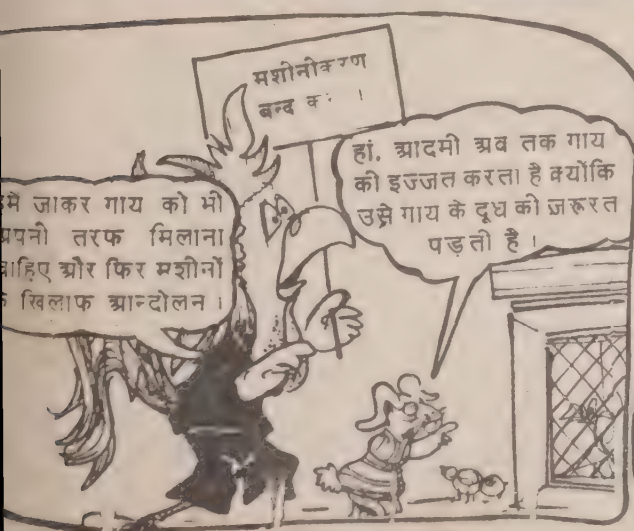 मशीनीकरण
बन्द
जाकर गाय को भी
तरफ मिलाना
और फिर मशीनों
खिलाफ आन्दोलन ।
हां, आदमी अब तक गाय
की इज्जत करता है क्योंकि
उसे गाय के दूध की जरूरत
पड़ती है ।